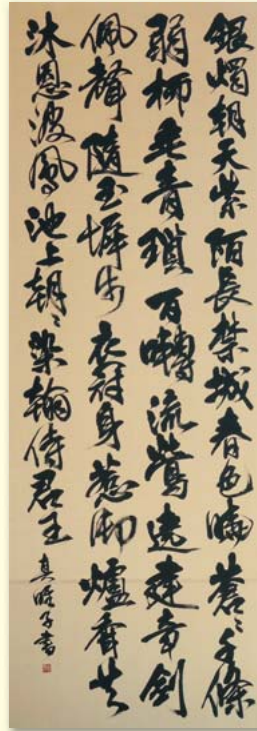 銀燭朝天紫陌長禁城春色曉蒼〻千條
弱柳垂青瑣百囀流鶯遶建章劍
佩聲隨玉墀步衣冠身惹御爐香共
沐恩波鳳池上朝〻染翰侍君王 真子書